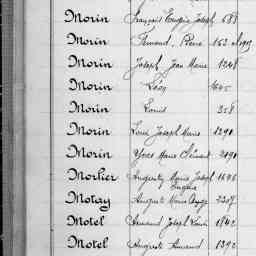 Morin François Eugène Joseph 688
Morin Fernand, Pierre 162
Morin Joseph Jean Marie 1248
Morin Léon 1645
Morin Louis 258
Morin Louis Joseph Marie 1290
Morin Yves Marie Clément 2090
Morlier Auguste Marie Joseph 1696
Eugène
Motay Auguste Marie Ange 2207
Motel Armand Joseph 1842
Motel Auguste Armand 1392